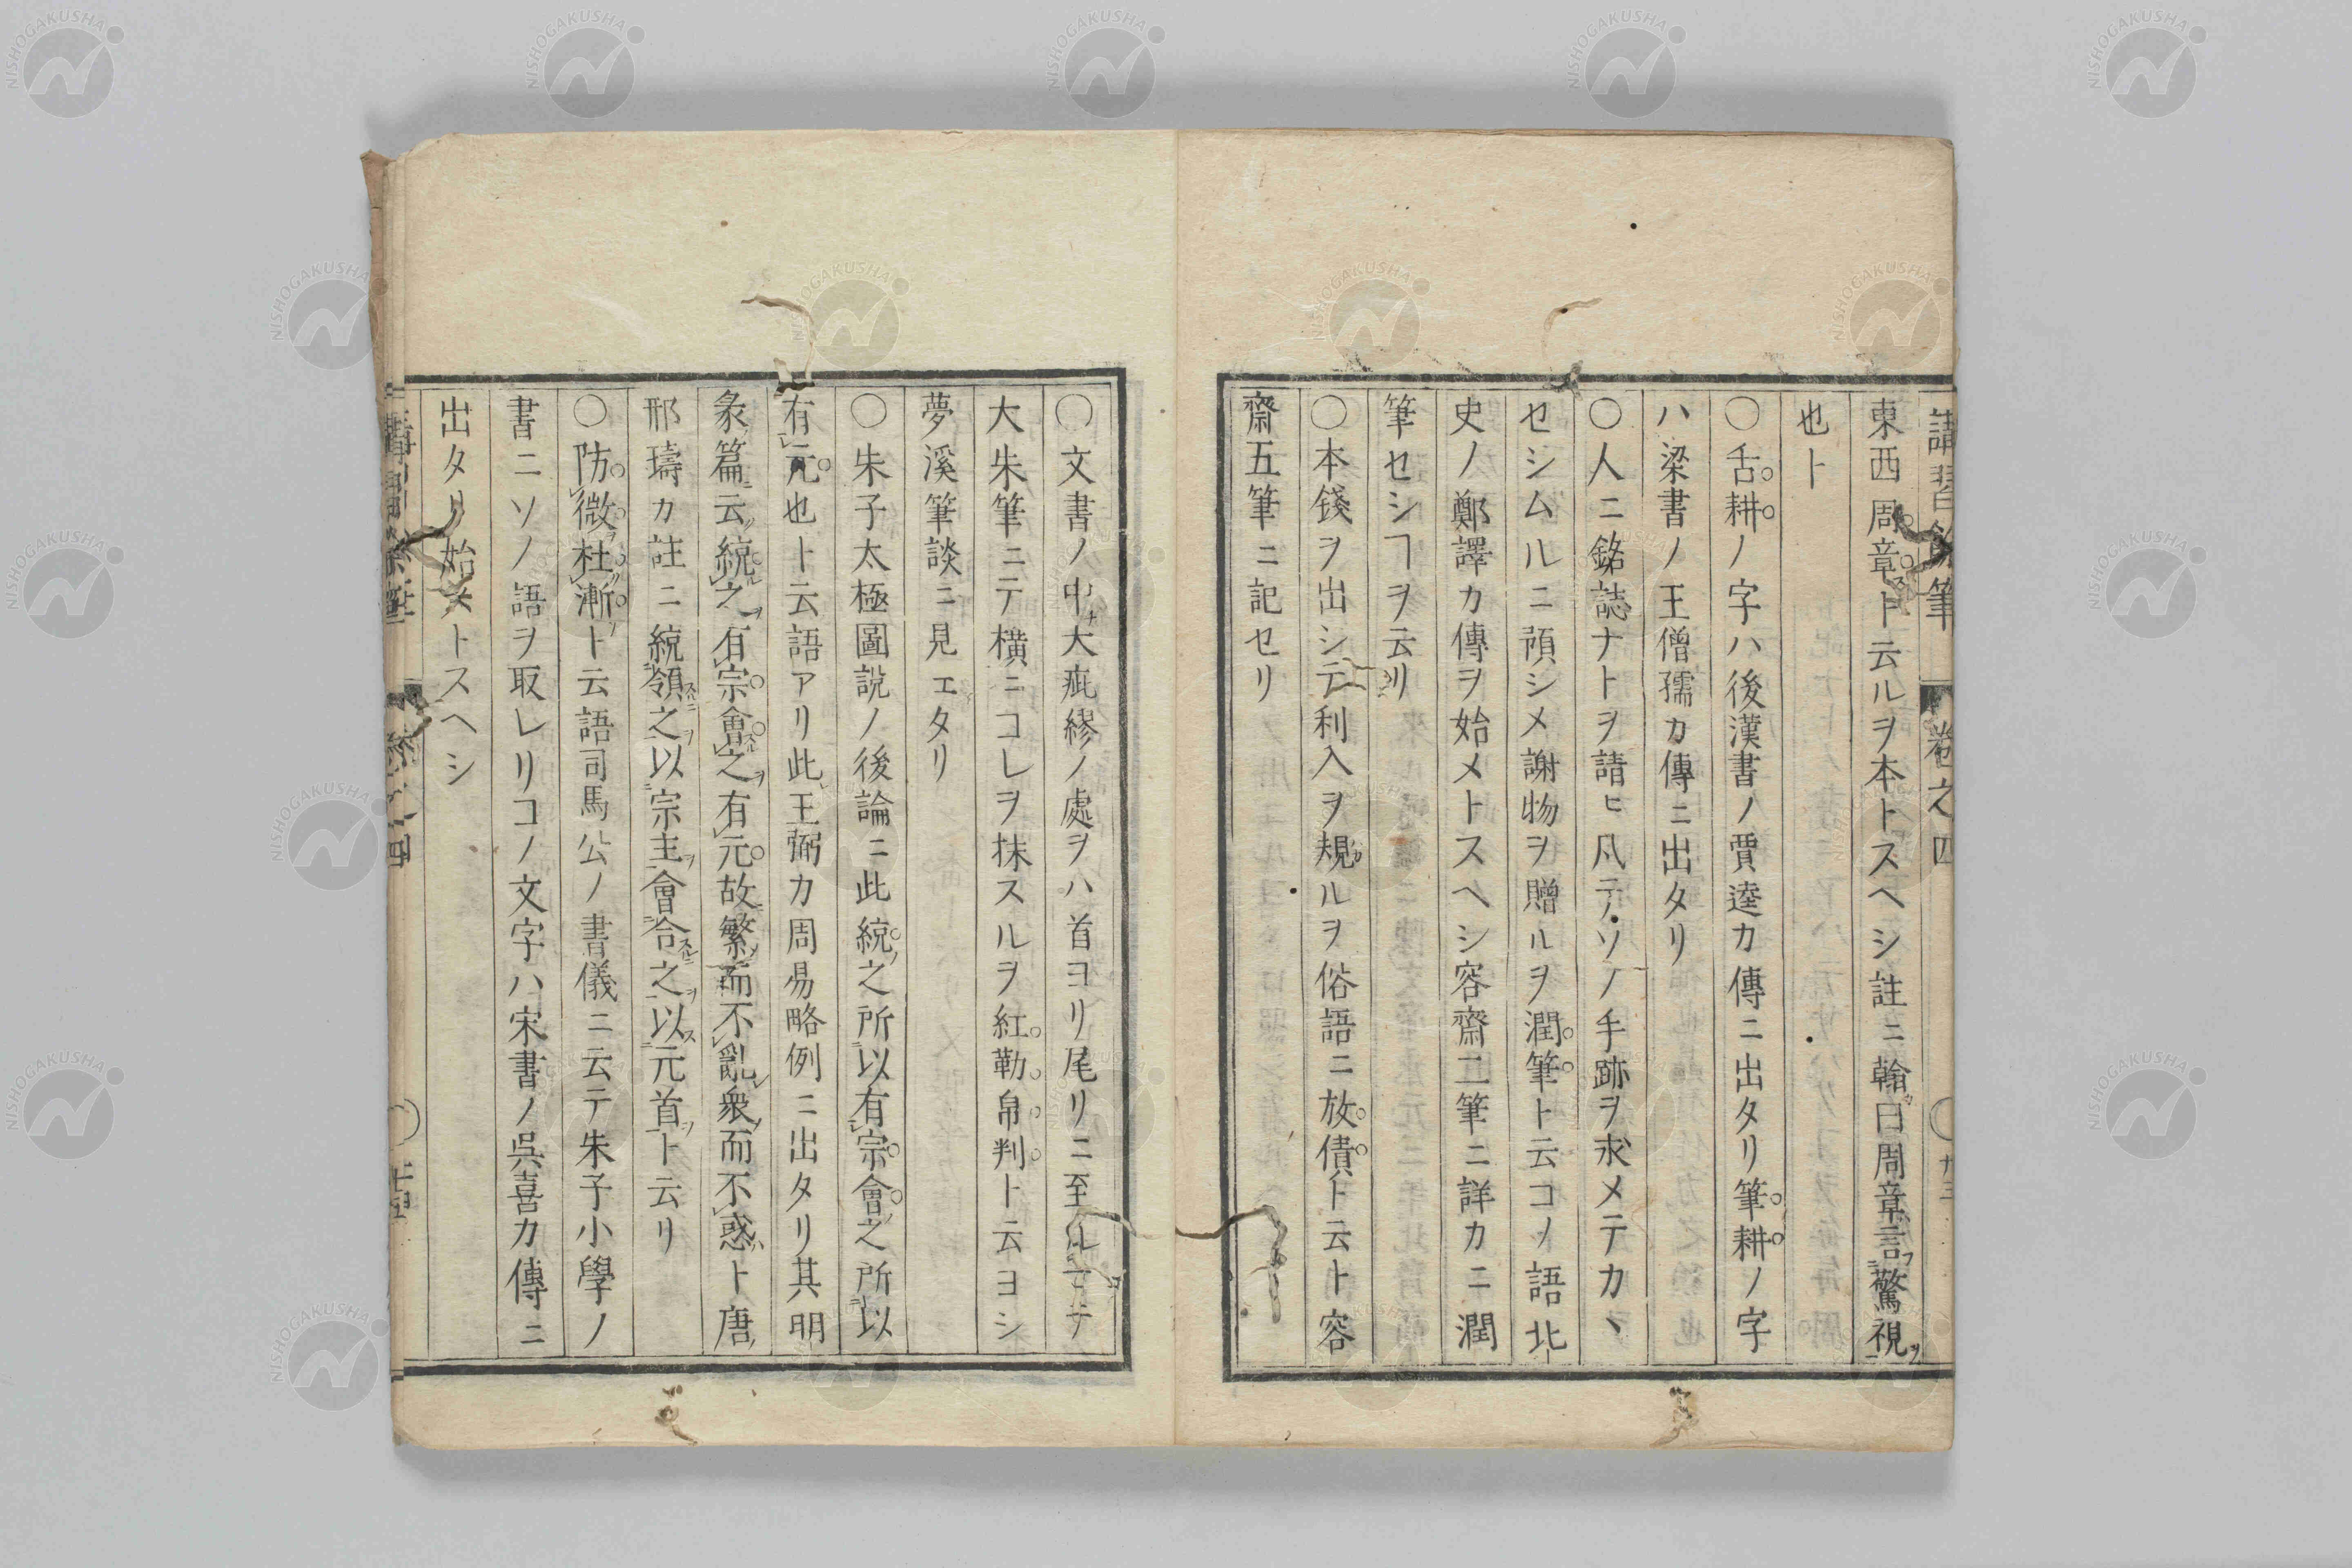 講習餘筆 卷之四
東西周章ト云ルヲ本トスヘシ註ニ翰曰周章言驚視
也ト
〇舌耕ノ字ハ後漢書ノ賈逵カ傳ニ出タリ筆耕ノ字
ハ梁書ノ王僧孺カ傳ニ出タリ
〇人ニ銘誌ナトヲ請ヒ凡テソノ手跡ヲ求メテカヽ
セシムルニ預シメ謝物ヲ贈ルヲ潤筆ト云コノ語北
史ノ鄭譯カ傳ヲ始メトスヘシ容齋二筆ニ詳カニ潤
筆セシヿヲ云リ
〇本錢ヲ出シテ利入ヲ規ルヲ俗語ニ放債ト云ト容
齋五筆ニ記セリ
〇文書ノ中大疵繆ノ處ヲハ首ヨリ尾リニ至ルマテ
大朱筆ニテ橫ニコレヲ抹スルヲ紅勒帛判ト云ヨシ
夢溪筆談ニ見エタリ
〇朱子太極圖説ノ後論ニ此統之所以有宗會之所以
有元也ト云語アリ此王弼カ周易略例ニ出タリ其明
彖篇云統之有宗會之有元故繁而不亂衆而不惑ト唐
邢璹カ註ニ統領之以宗主會合之以元首ト云リ
〇防微杜漸ト云語司馬公ノ書儀ニ云テ朱子小學ノ
書ニソノ語ヲ取レリコノ文字ハ宋書ノ吳喜カ傳ニ
出タリ始メトスヘシ
NISHOGAKUSHA